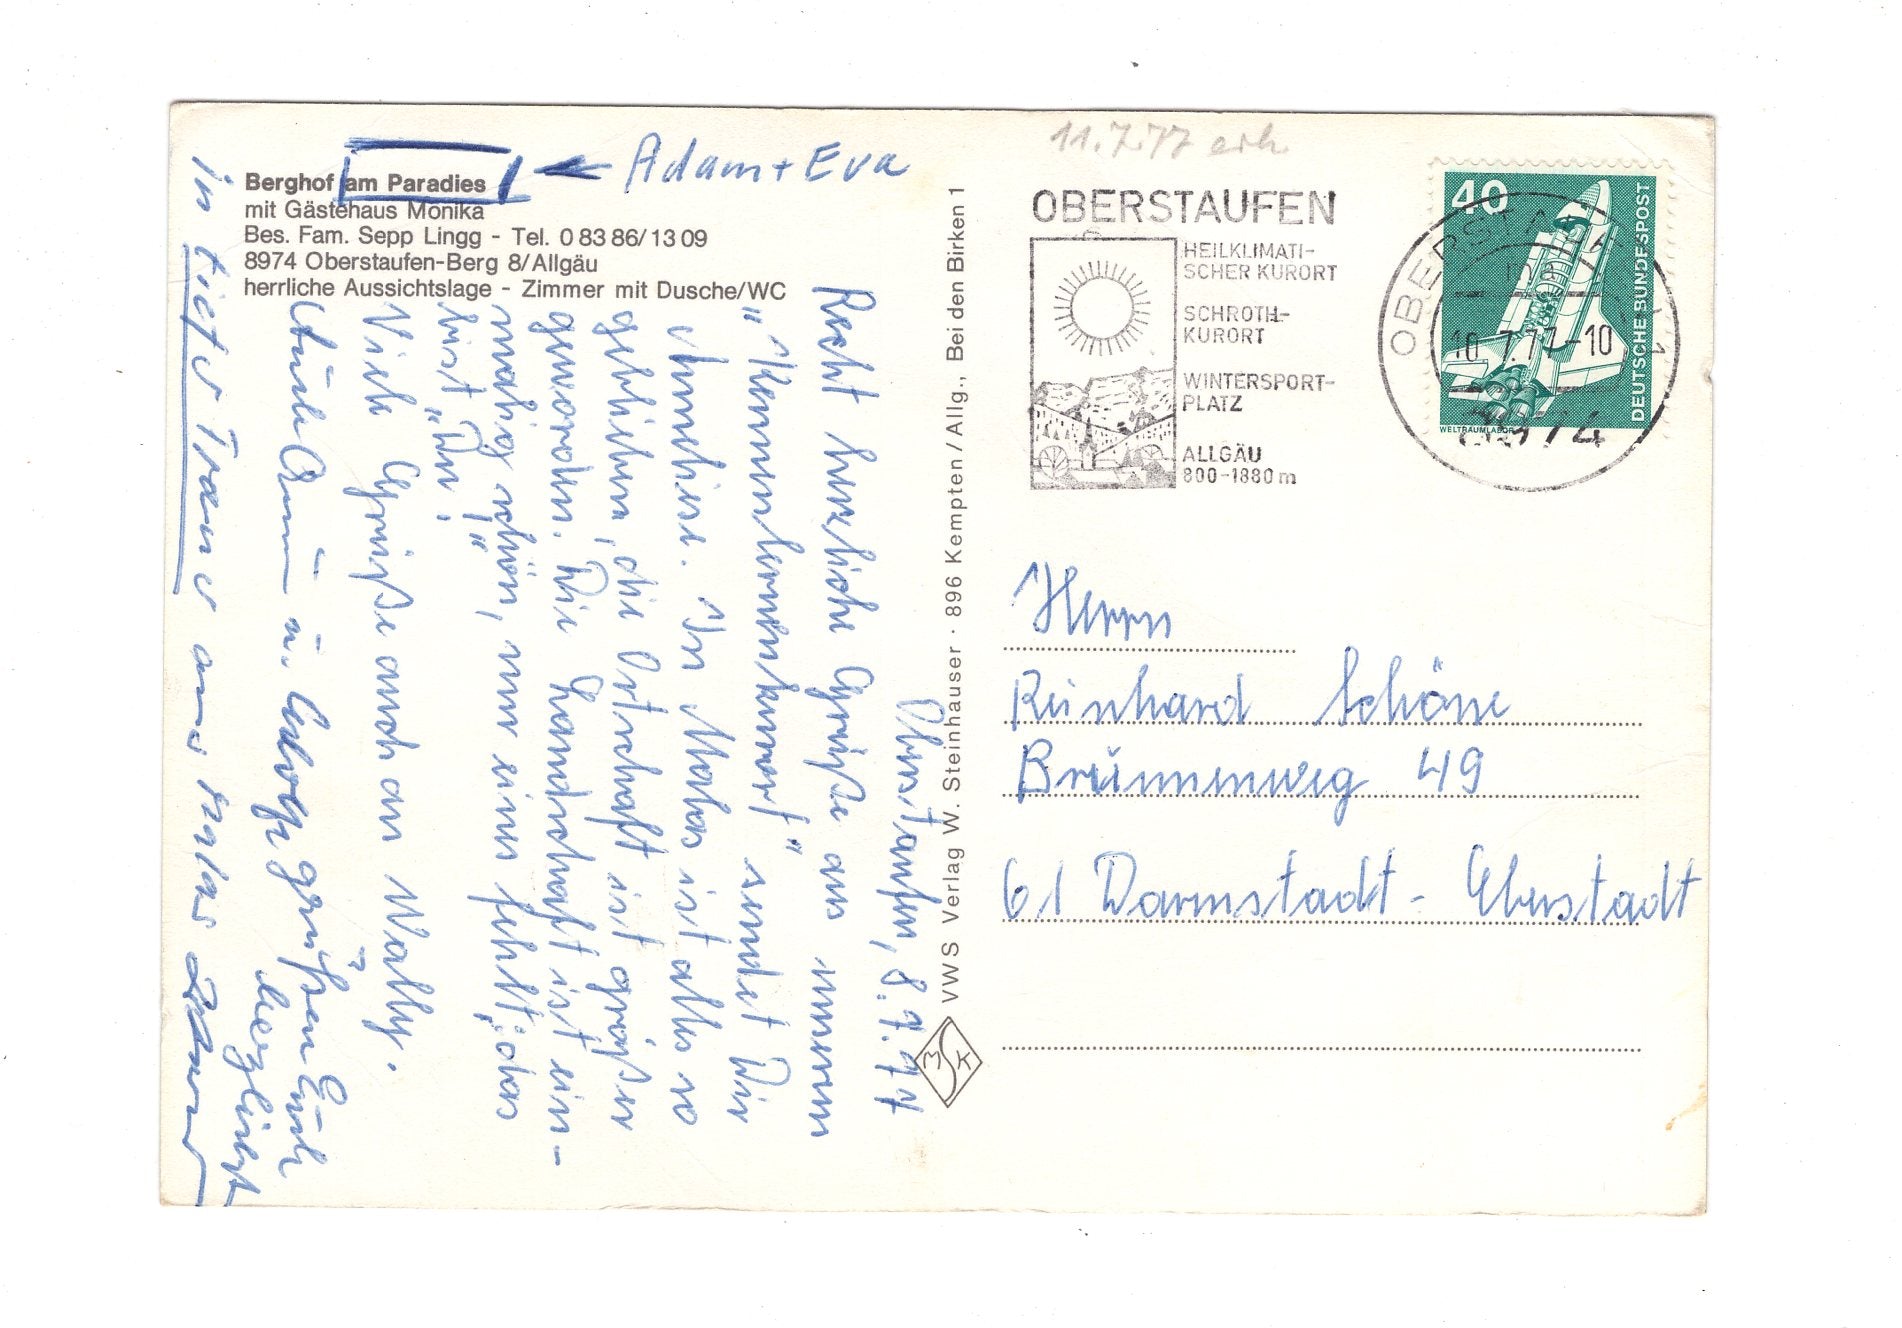 Berghof am Paradies
mit Gästehaus Monika
Bes. Fam. Sepp Lingg - Tel. 0 83 86/13 09
8974 Oberstaufen-Berg 8/Allgäu
herrliche Aussichtslage - Zimmer mit Dusche/WC
Adam + Eva
Oberstaufen, 8.7.77
Recht herzliche Grüße aus unserem
"Kennenlernenkurort" sendet Dir
Anneliese. In Malas ist alles so
geblieben, die Ortschaft ist größer
geworden. Die Landschaft ist ein-
malig schön, nur einer fehlt, das
bist "Du!"
Viele Grüße auch an Wally.
u. Adolf grüßen Euch
herzlichst
in tiefer Trauer aus Malas
VWS Verlag W. Steinhauser · 896 Kempten/Allg., Bei den Birken 1
MSK
11.7.77 erh
OBERSTAUFEN
HEILKLIMATI-
SCHER KURORT
SCHROTH-
KURORT
WINTERSPORT-
PLATZ
ALLGÄU
800-1880 m
40
DEUTSCHE BUNDESPOST
WELTRAUMLABOR
OBERSTAUFEN 1
10.7.77-10
8974
Herrn
Reinhard Schöne
Brunnenweg 49
61 Darmstadt - Eberstadt